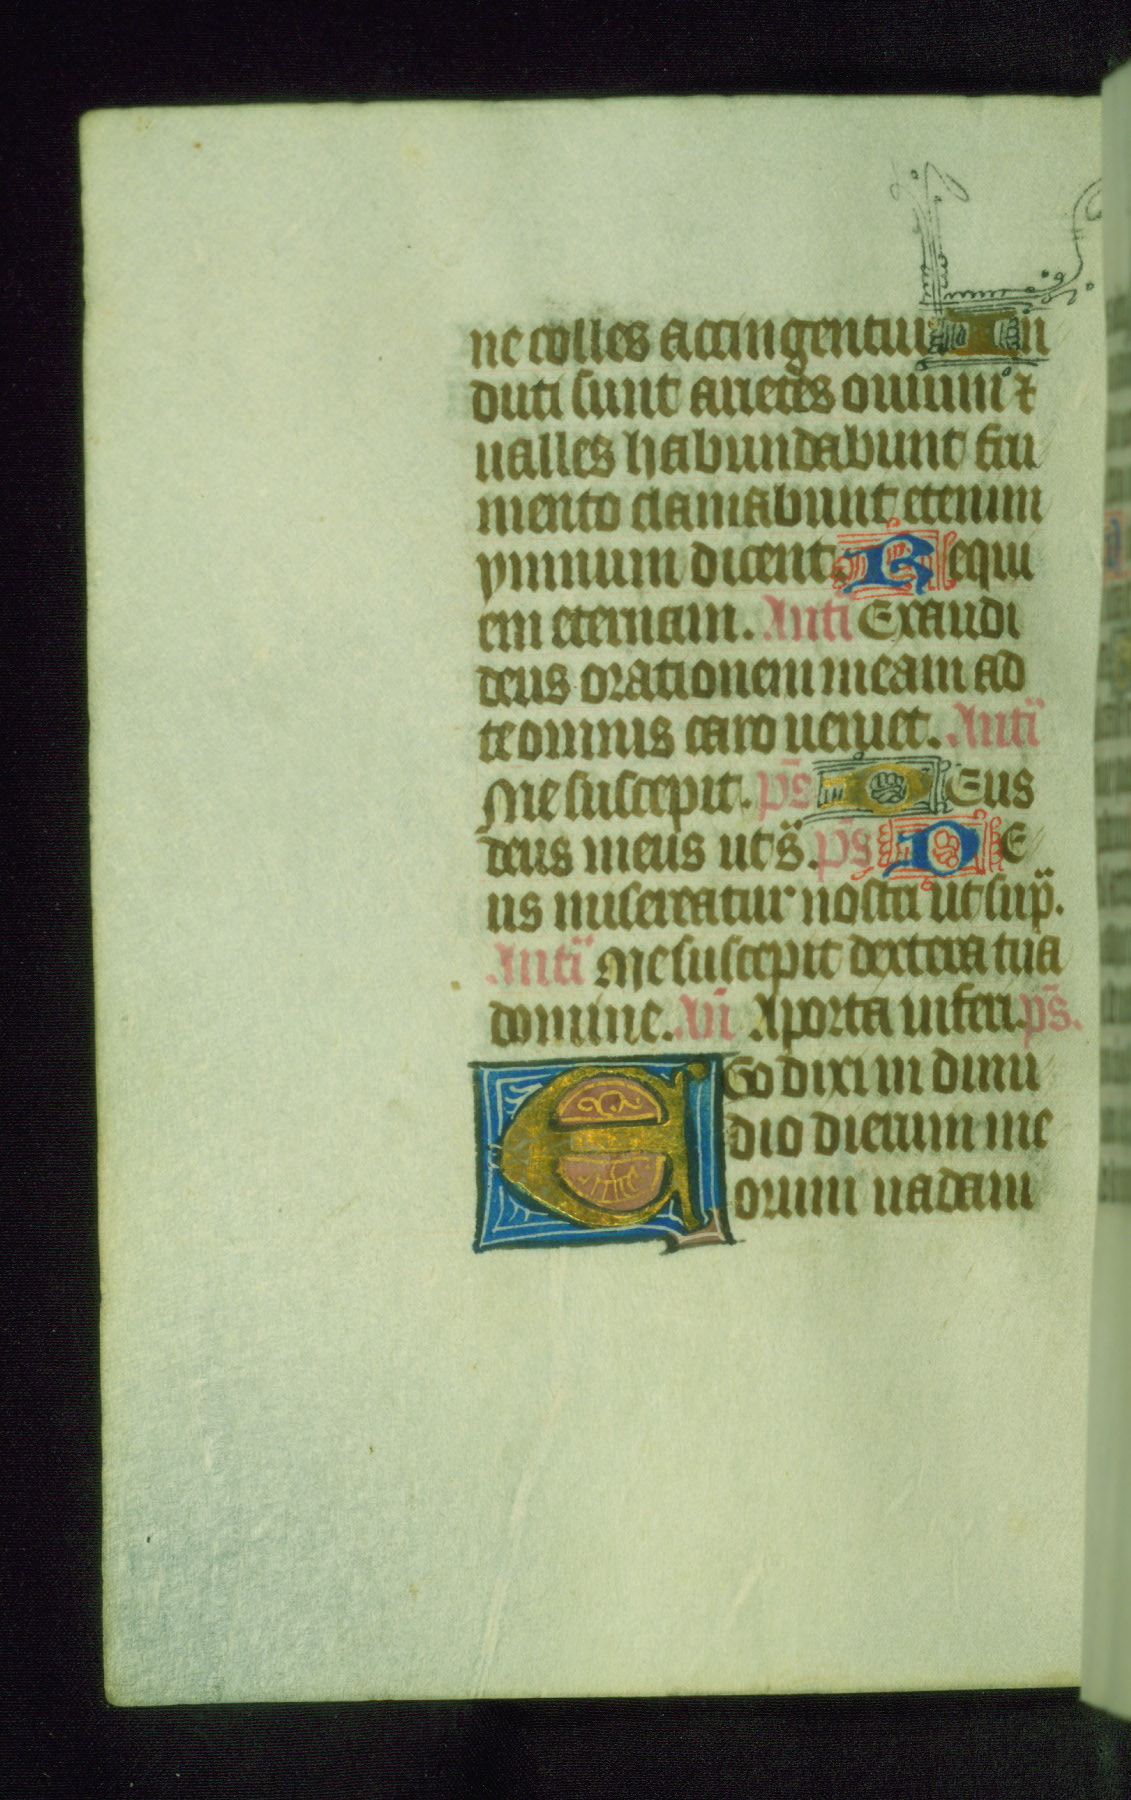 ne colles accingentur In
duti sunt arietes ouium ⁊
ualles habundabunt fru
mento clamabunt etenim
ymnum dicent. Requi
em eternam. Anti Exaudi
deus orationem meam ad
te omnis caro ueniet. Anti
Me suscepit. ps Deus
deus meus ut s. ps De
us misereatur nostri ut sup.
Anti Me suscepit dextera tua
domine. An A porta inferi. ps.
Ego dixi in dimi
dio dierum me
orum uadam